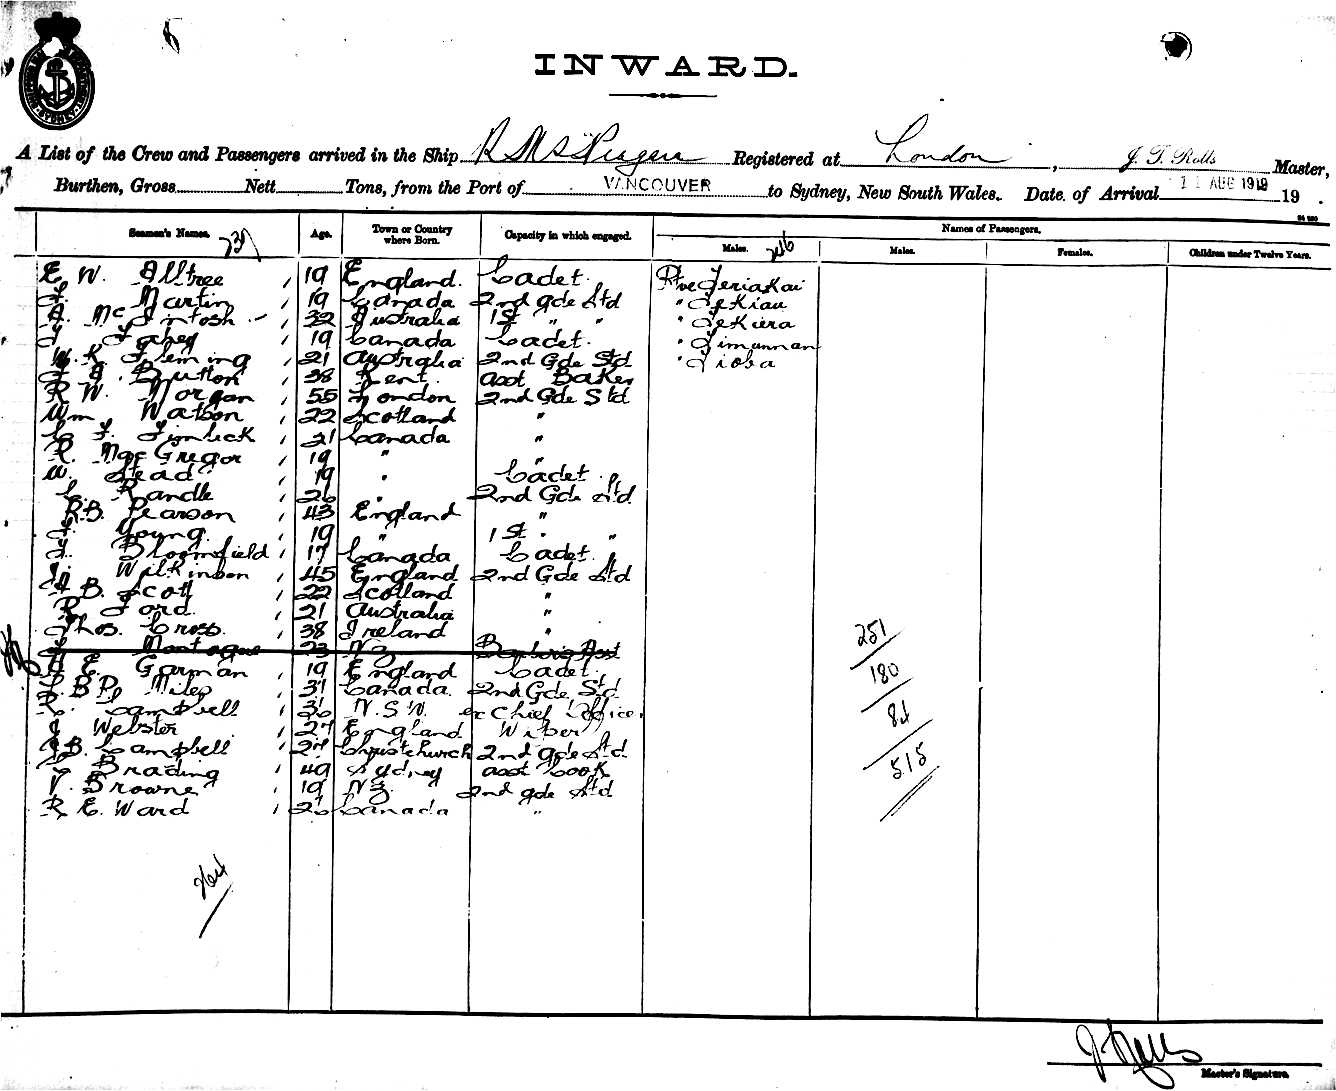 INWARD.
A List of the Crew and Passengers arrived in the Ship R M S Niagara Registered at London, J. T. Rolls Master,
Burthen, Gross Nett Tons, from the Port of VANCOUVER to Sydney, New South Wales. Date of Arrival 11 AUG 1919 19 .
Seamen's Names. Age. Town or Country where Born. Capacity in which engaged. Names of Passengers.
Males. Males. Females. Children under Twelve Years.
E W. Alltree 19 England. Cadet. Pte Teriakai
Martin 19 Canada 2nd gde Std " Tekiau
A. McIntosh 32 Australia 1st " " " Tekiera
Fahey 19 Canada Cadet. "
W. K Fleming 21 Australia 2nd Gde Std " Tioba
Button 38 Kent. asst Baker
R W. Morgan 55 London 2nd Gde Std
Wm Watson 22 Scotland "
21 Canada "
R. MacGregor 19 " "
W. Stead 19 " Cadet.
C. Randle 26 " 2nd Gde Std
R.B. Pearson 43 England "
Young 19 " 1st " "
Bloomfield 17 Canada Cadet.
Wilkinson 45 England 2nd Gde Std
B. Scott 22 Scotland "
R. Ford. 21 Australia "
Thos. Cross. 38 Ireland "
Montague 23 NZ
E. Garman 19 England Cadet.
Miles 31 Canada. 2nd Gde Std
Campbell 36 N.S.W. ex Chief Officer.
J Webster 27 England Wiper
Campbell 27 Christchurch 2nd gde Std.
Brading 49 Sydney asst Cook
V. Browne 19 NZ. 2nd gde Std
R E. Ward 26 Canada "
251
180
84
515
264
J Rolls
Master's Signature.